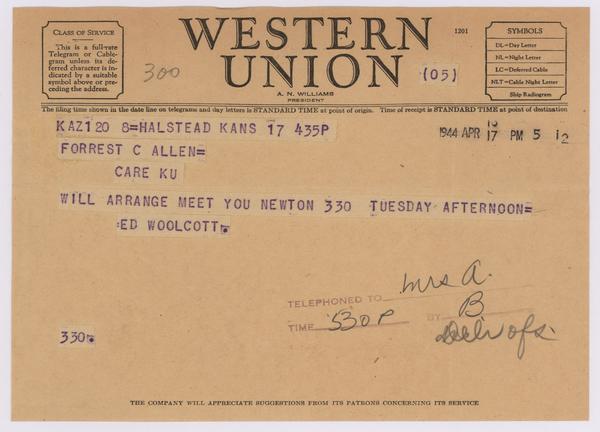 CLASS OF SERVICE
This is a full-rate
Telegram or Cable-
gram unless its de-
ferred character is in-
dicated by a suitable
symbol above or pre-
ceding the address.
300
WESTERN
UNION
A. N. WILLIAMS
PRESIDENT
1201
(05)
SYMBOLS
DL=Day Letter
NL=Night Letter
LC=Deferred Cable
NLT=Cable Night Letter
Ship Radiogram
The filing time shown in the date line on telegrams and day letters is STANDARD TIME at point of origin. Time of receipt is STANDARD TIME at point of destination
KAZ120 8=HALSTEAD KANS 17 435P
1944 APR 17 PM 5 12
FORREST C ALLEN=
CARE KU
WILL ARRANGE MEET YOU NEWTON 330 TUESDAY AFTERNOON=
ED WOOLCOTT.
TELEPHONED TO Mrs A.
TIME 530P BY B
Del'v ofs.
330.
THE COMPANY WILL APPRECIATE SUGGESTIONS FROM ITS PATRONS CONCERNING ITS SERVICE